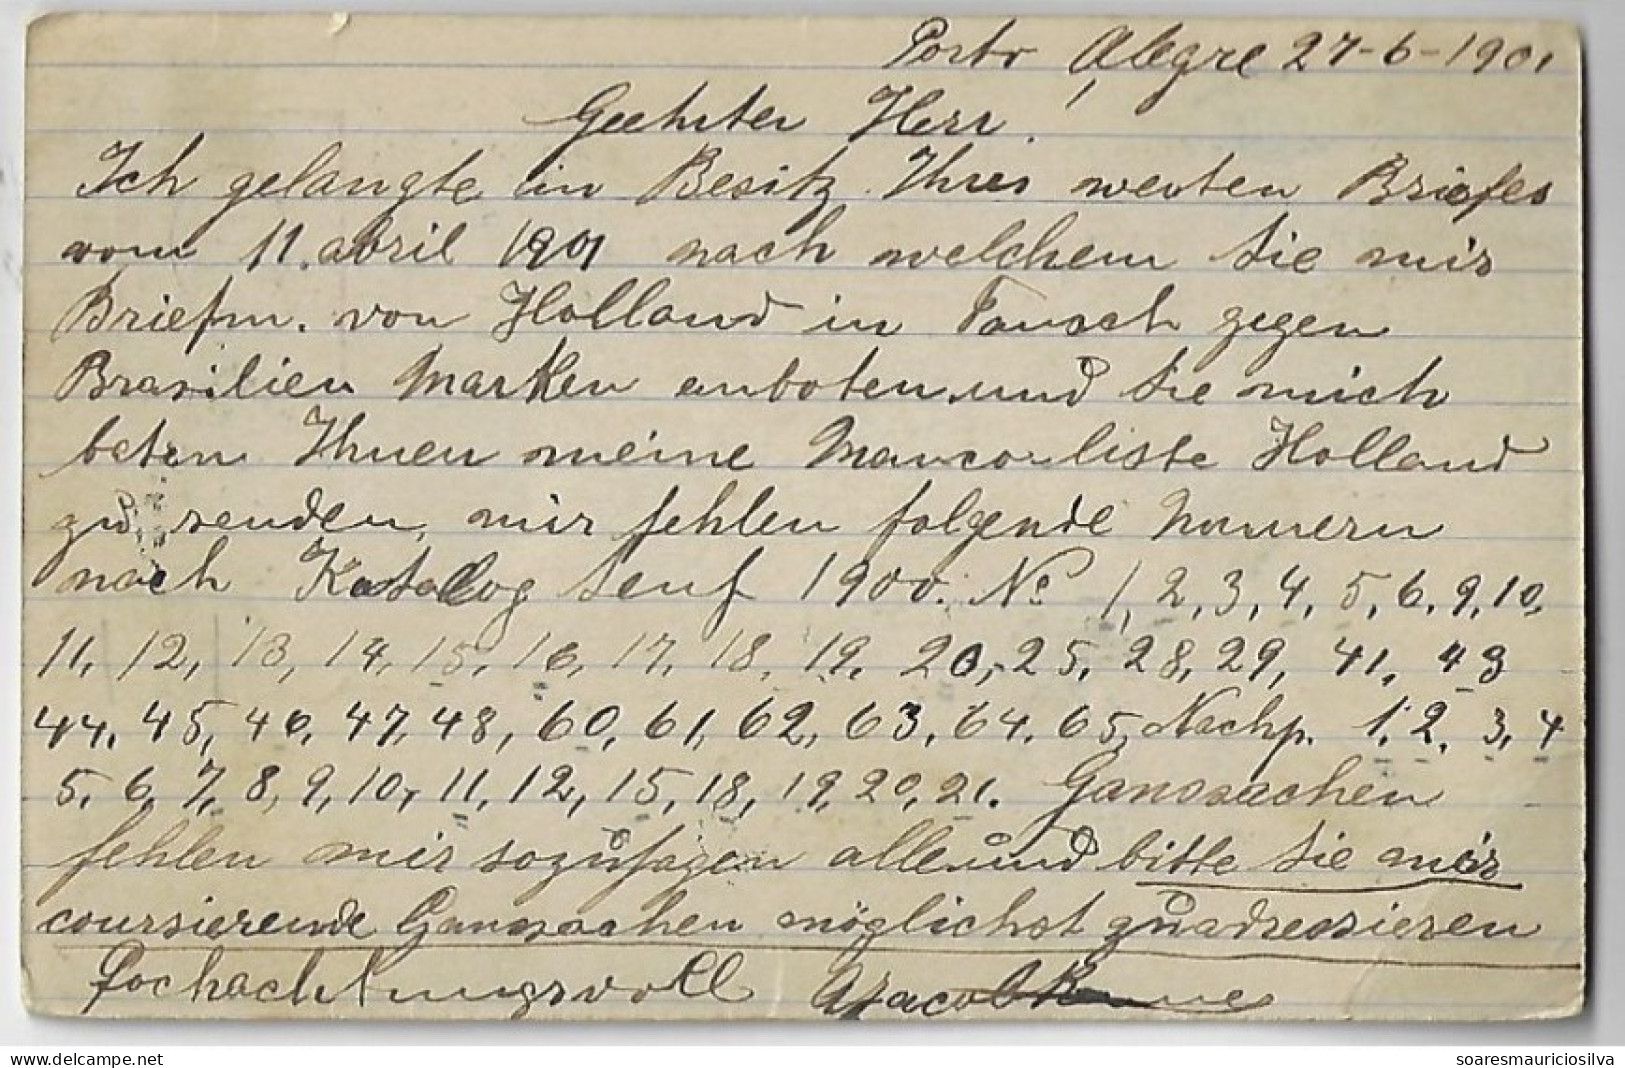 Porto Alegre 27-6-1901
Geehrter Herr.
Ich gelangte in Besitz Ihres werten Briefes
vom 11. abril 1901 nach welchem Sie mir
Briefm. von Holland in Tausch gegen
Brasilien Marken anboten und Sie mich
beten Ihnen meine Mancoliste Holland
zu senden, mir fehlen folgende Numern
nach Katalog Senf 1900. No 1, 2, 3, 4, 5, 6, 9, 10,
11, 12, 13, 14, 15, 16, 17, 18, 19, 20, 25, 28, 29, 41, 43
44, 45, 46, 47, 48, 60, 61, 62, 63, 64, 65, Nachp. 1, 2, 3, 4
5, 6, 7, 8, 9, 10, 11, 12, 15, 18, 19, 20, 21. Ganssachen
fehlen mir sozusagen alle und bitte Sie mir
coursierende Ganssachen möglichst zu adressieren
Hochachtungsvoll
soaresmauriciosilva
delcampe.net